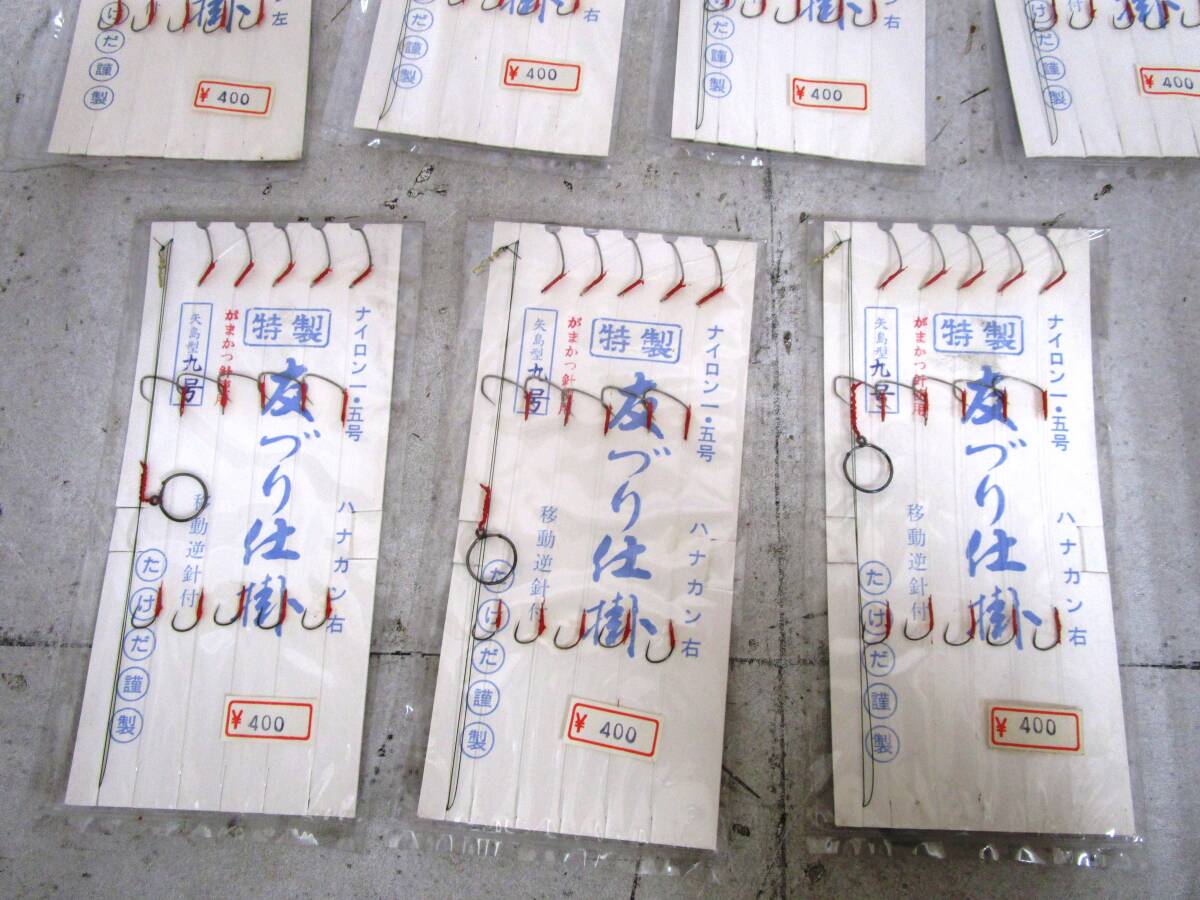 左
掛
だ
謹
製
¥400
右
掛
だ
謹
製
¥400
右
掛
だ
謹
製
¥400
掛
けだ謹製
¥400
ナイロン一・五号
ハナカン右
特製
友づり仕掛
がまかつ針使用
移動逆針付
矢島型九号
たけだ謹製
¥400
ナイロン一・五号
ハナカン右
特製
友づり仕掛
がまかつ針使用
移動逆針付
矢島型九号
たけだ謹製
¥400
ナイロン一・五号
ハナカン右
特製
友づり仕掛
がまかつ針使用
移動逆針付
矢島型九号
たけだ謹製
¥400